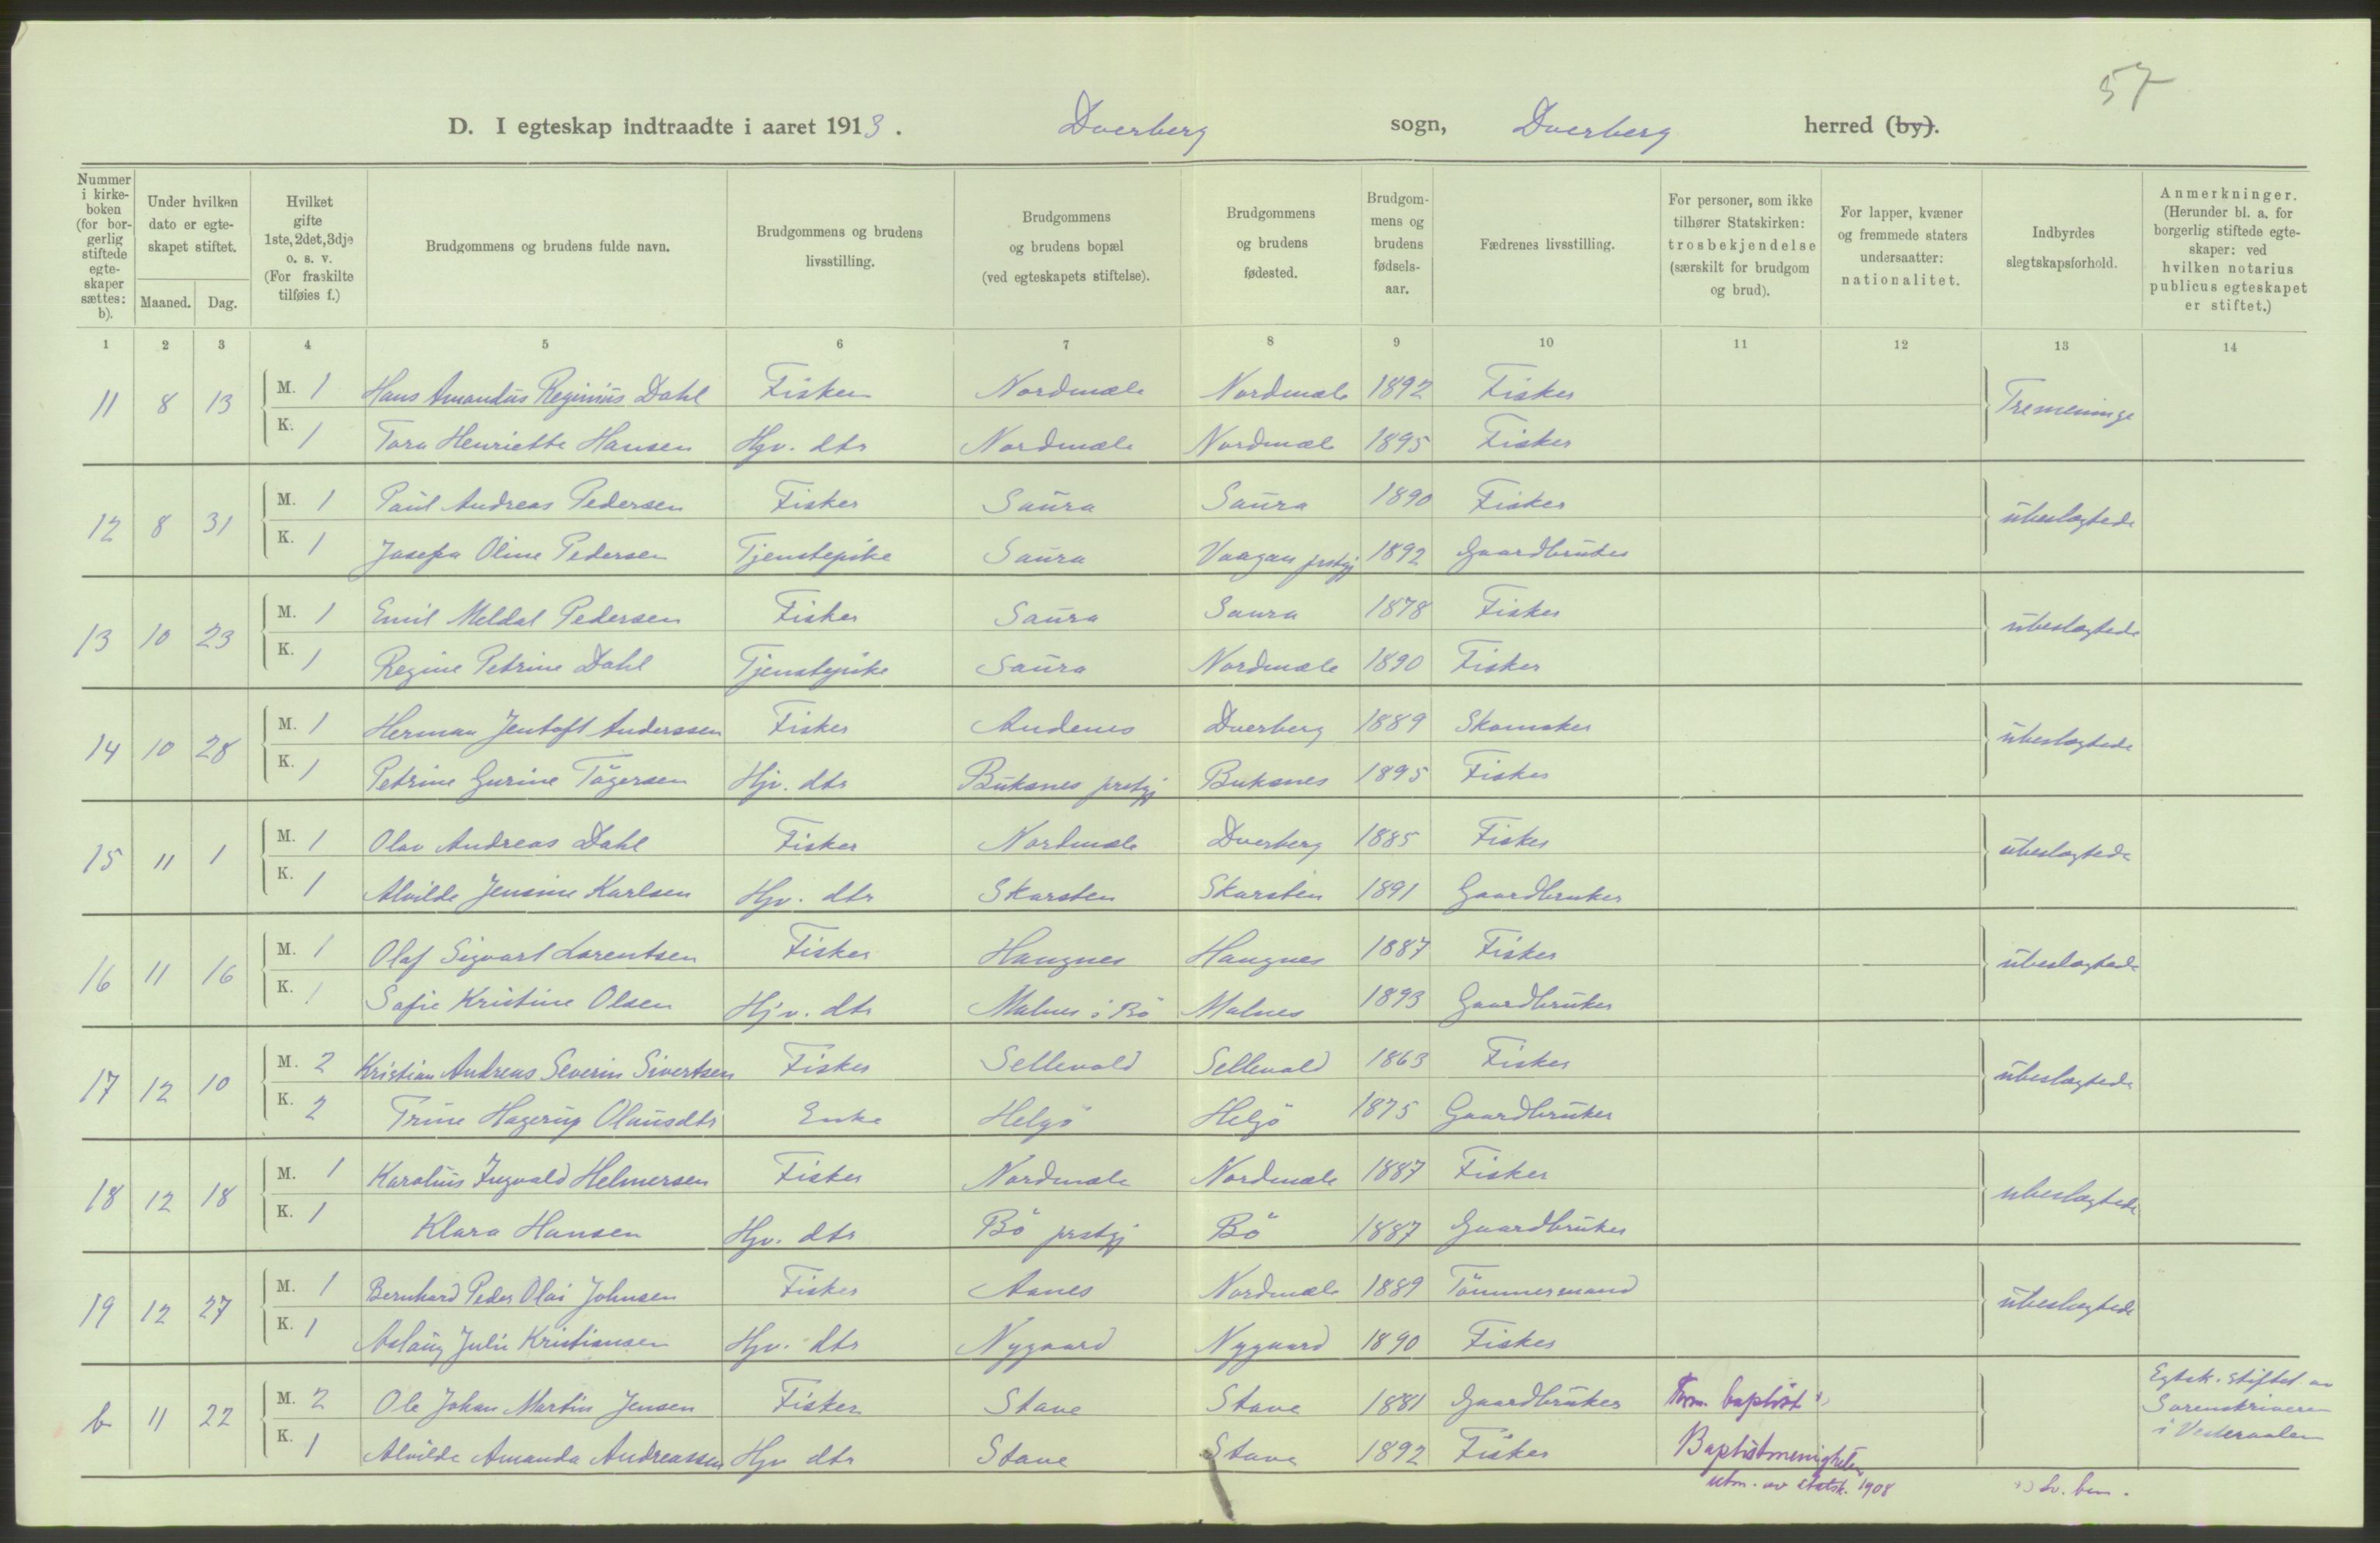 57
D. I egteskap indtraadte i aaret 1913. Dverberg sogn, Dverberg herred (by).
Nummer i kirkeboken (for borgerlig stiftede egteskaper sættes: b).
Under hvilken dato er egteskapet stiftet.
Maaned. Dag.
Hvilket gifte 1ste, 2det, 3dje o. s. v. (For fraskilte tilføies f.)
Brudgommens og brudens fulde navn.
Brudgommens og brudens livsstilling.
Brudgommens og brudens bopæl (ved egteskapets stiftelse).
Brudgommens og brudens fødested.
Brudgommens og brudens fødselsaar.
Fædrenes livsstilling.
For personer, som ikke tilhører Statskirken: trosbekjendelse (særskilt for brudgom og brud).
For lapper, kvæner og fremmede staters undersaatter: nationalitet.
Indbyrdes slegtskapsforhold.
Anmerkninger. (Herunder bl. a. for borgerlig stiftede egteskaper: ved hvilken notarius publicus egteskapet er stiftet.)
1 2 3 4 5 6 7 8 9 10 11 12 13 14
11 8 13 M. 1 Hans Amandus Reginius Dahl Fisker Nordmæle Nordmæle 1892 Fisker Tremeninge
K. 1 Tora Henriette Hansen Hjv. dtr Nordmæle Nordmæle 1895 Fisker
12 8 31 M. 1 Paul Andreas Pedersen Fisker Saura Saura 1890 Fisker ubeslægtede
K. 1 Josefa Oline Pedersen Tjenstepike Saura Vaagan prstgj 1892 Gaardbruker
13 10 23 M. 1 Emil Meldal Pedersen Fisker Saura Saura 1878 Fisker ubeslægtede
K. 1 Regine Petrine Dahl Tjenstepike Saura Nordmæle 1890 Fisker
14 10 28 M. 1 Herman Jentoft Anderssen Fisker Andenes Dverberg 1889 Skomaker ubeslægtede
K. 1 Petrine Gurine Tögersen Hjv. dtr Buksnes prstgj Buksnes 1895 Fisker
15 11 1 M. 1 Olav Andreas Dahl Fisker Nordmæle Dverberg 1885 Fisker ubeslægtede
K. 1 Alvilde Jensine Karlsen Hjv. dtr Skarsten Skarsten 1891 Gaardbruker
16 11 16 M. 1 Olaf Sigvart Lorentsen Fisker Haugnes Haugnes 1887 Fisker ubeslægtede
K. 1 Sofie Kristine Olsen Hjv. dtr Malnes i Bö Malnes 1893 Gaardbruker
17 12 10 M. 2 Kristian Andreas Severin Sivertsen Fisker Sellevold Sellevold 1863 Fisker ubeslægtede
K. 2 Trine Hagerup Olausdtr Enke Helgö Helgö 1875 Gaardbruker
18 12 18 M. 1 Karolius Ingvald Helmersen Fisker Nordmæle Nordmæle 1887 Fisker ubeslægtede
K. 1 Klara Hansen Hjv. dtr Bö prstgj Bö 1887 Gaardbruker
19 12 27 M. 1 Bernhard Peder Olai Johnsen Fisker Aanes Nordmæle 1889 Tömmermand ubeslægtede
K. 1 Aslaug Julie Kristiansen Hjv. dtr Nygaard Nygaard 1890 Fisker
b 11 22 M. 2 Ole Johan Martin Jensen Fisker Stave Stave 1881 Gaardbruker baptist Egtsk. stiftet av Sorenskriveren i Vesteraalen
K. 1 Alvilde Amanda Andreassen Hjv dtr Stave Stave 1892 Fisker Baptistmenigheten
utm. av statsk. 1908